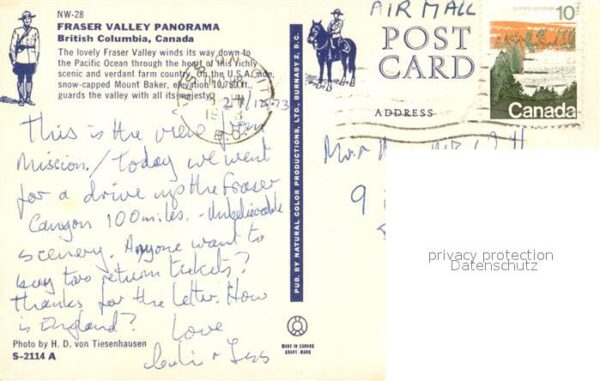 NW-28
FRASER VALLEY PANORAMA
British Columbia, Canada
The lovely Fraser Valley winds its way down to
the Pacific Ocean through the heart of this richly
scenic and verdant farm country. On the U.S.A. side,
snow-capped Mount Baker, elevation 10,750 ft.,
guards the valley with all its majesty.
27/12/73
This is the view from
Mission. / Today we went
for a drive up the Fraser
Canyon 100 miles. - Unbelievable
scenery. Anyone want to
buy two return tickets?
Thanks for the letter. How
is England?
Love
Photo by H. D. von Tiesenhausen
S-2114 A
PUB. BY NATURAL COLOR PRODUCTIONS, LTD., BURNABY 2, B.C.
MADE IN CANADA
AIR MALL
POST
CARD
ADDRESS
postes/postage
10
Canada
9
privacy protection
Datenschutz